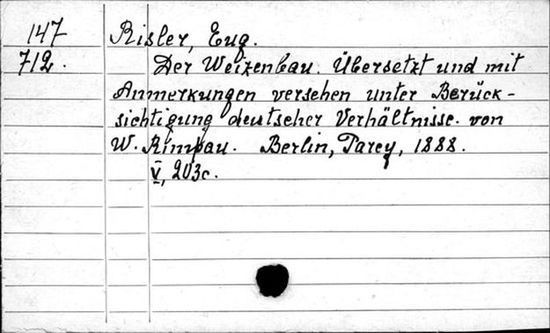 147
712.
Risler, Eug.
Der Weizenbau. Übersetzt und mit
Anmerkungen versehen unter Berück-
sichtigung deutscher Verhältnisse. von
W. Rimpau. Berlin, Parey, 1888.
V, 203c.